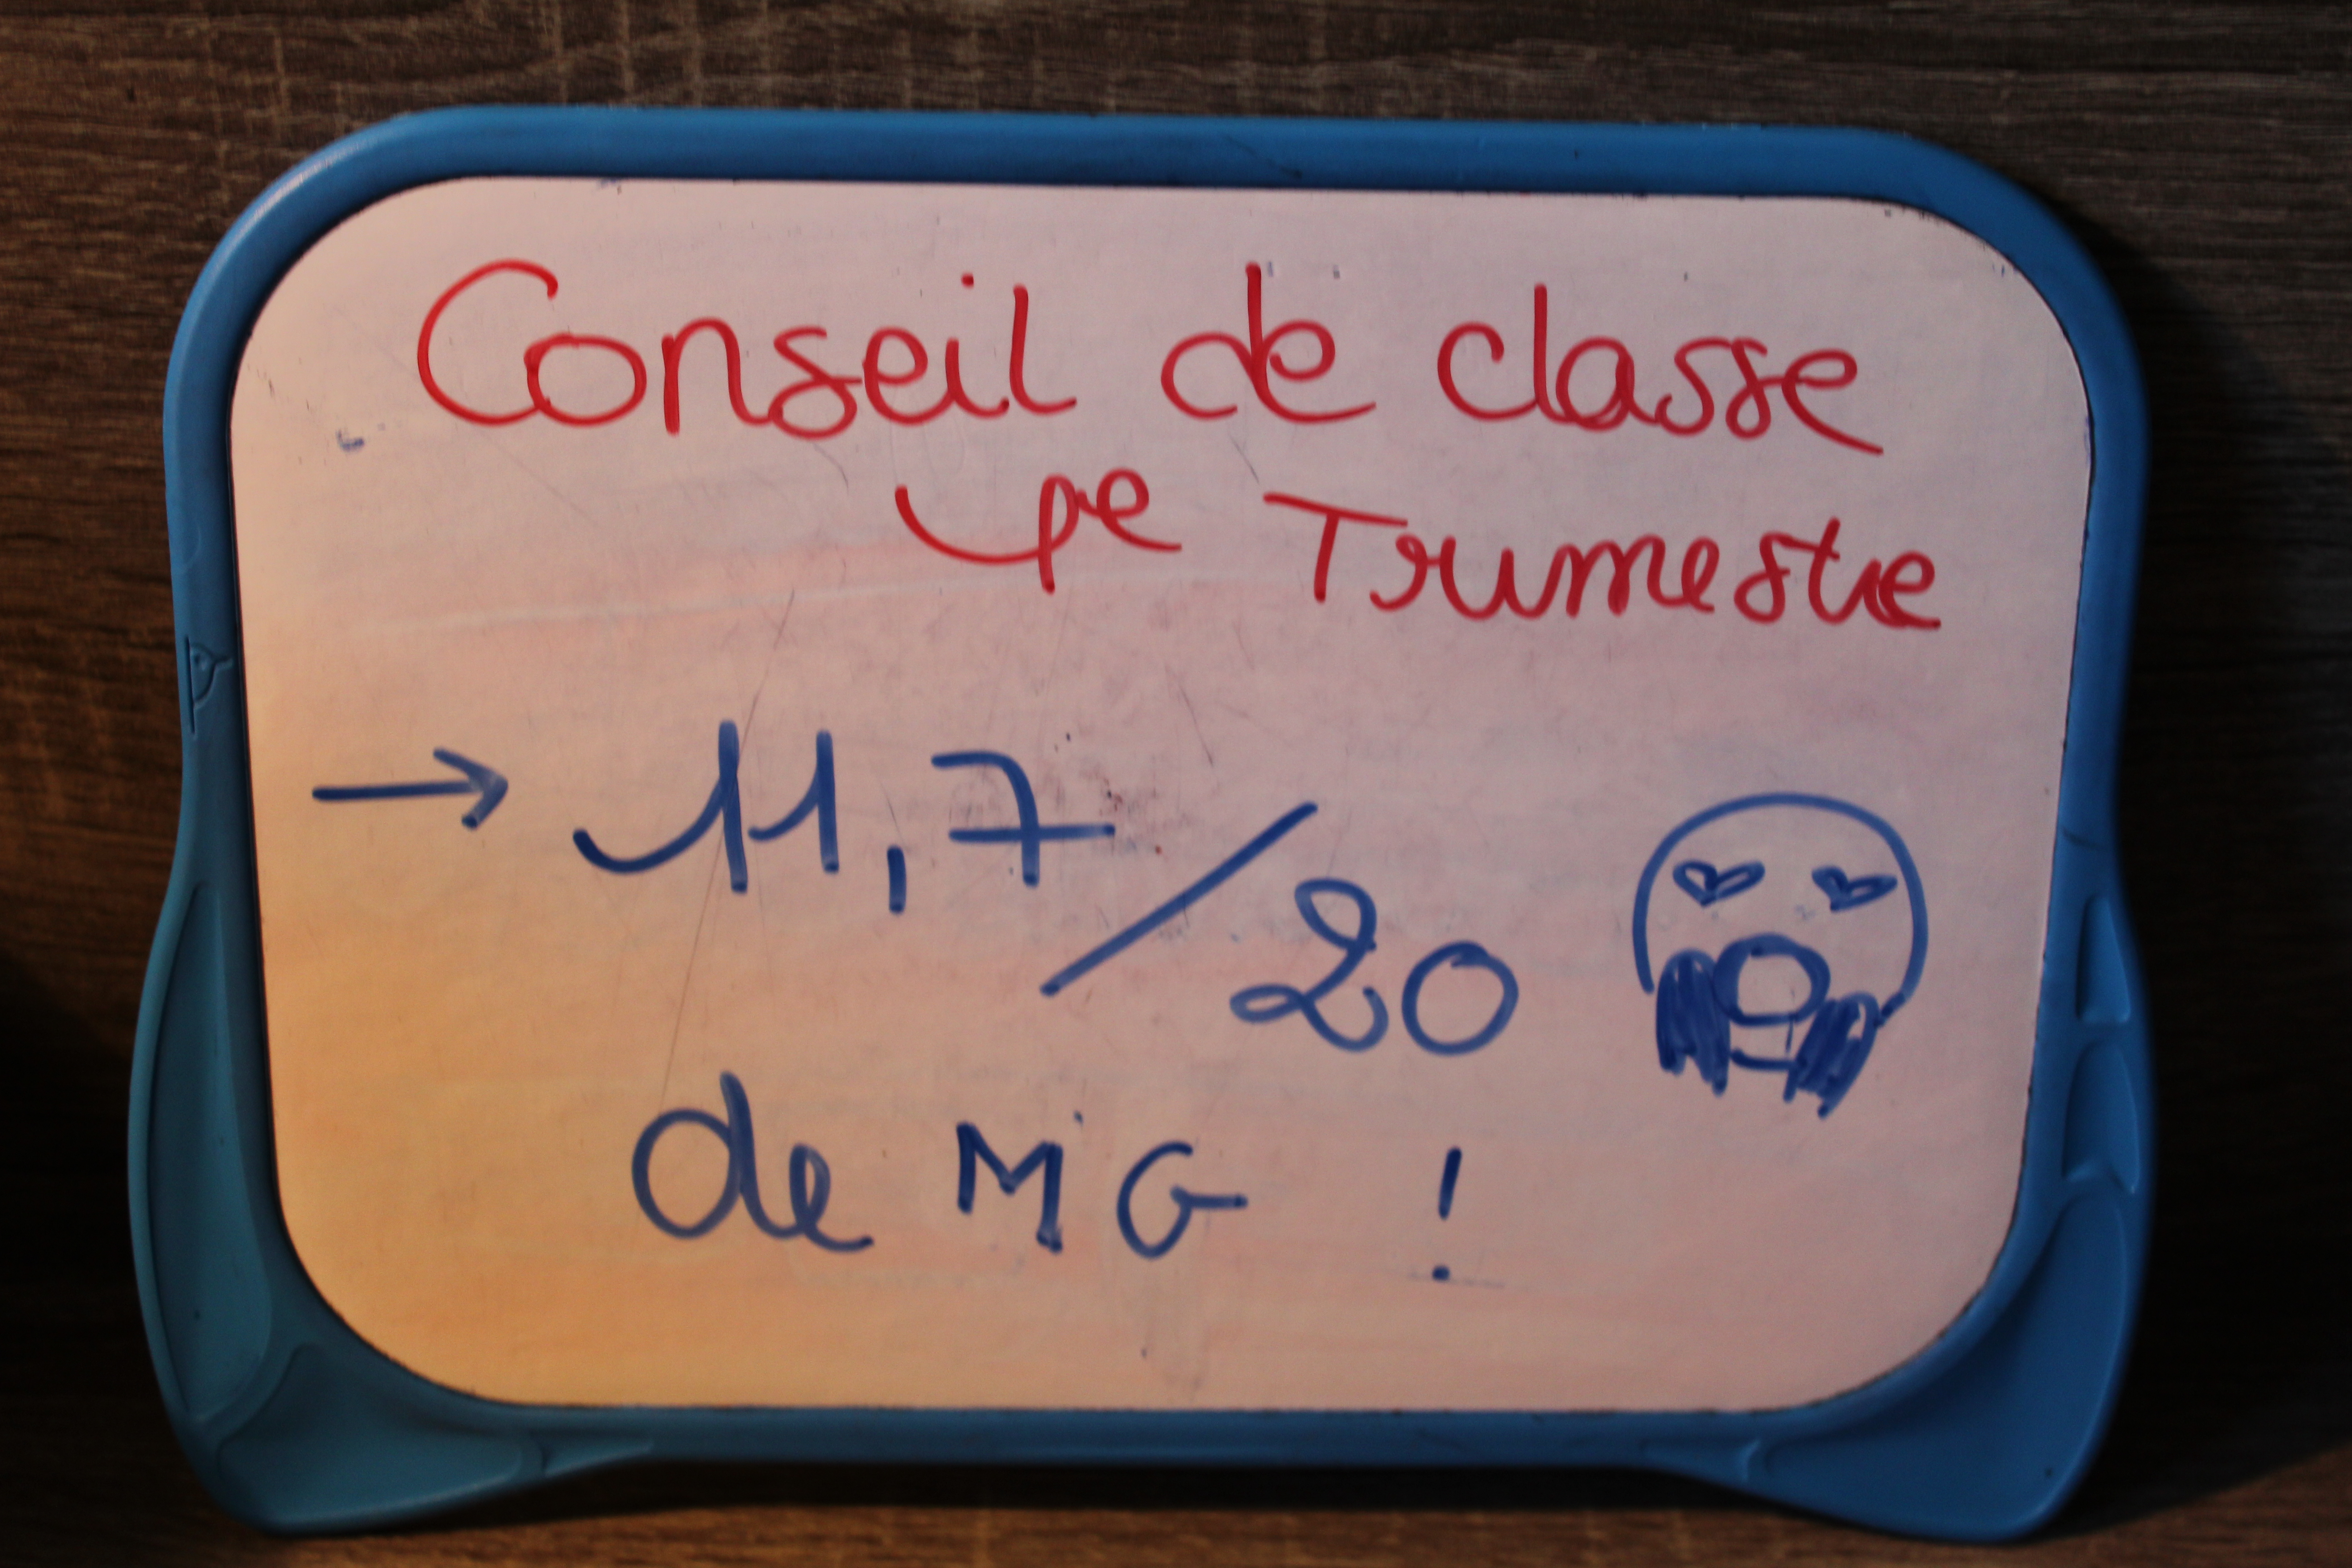 Conseil de classe
1e Trimestre
→ 11,7/20
de MG !